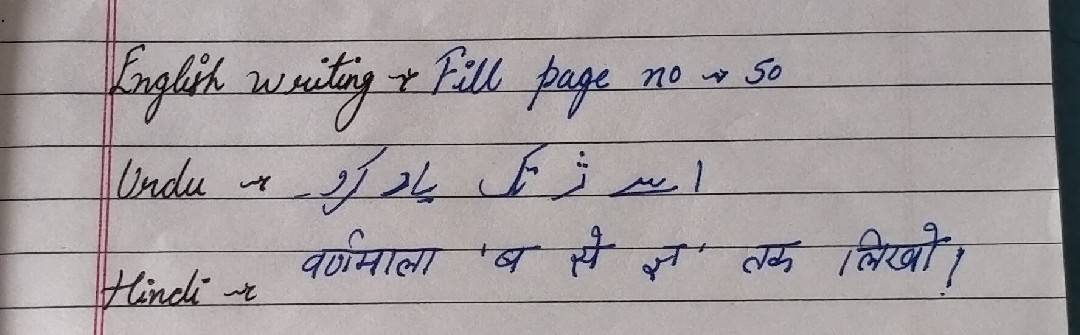 English writing → Fill page no → 50
Urdu → ا سے ژ تک یاد کرو۔
Hindi → वर्णमाला 'ब से ज्ञ' तक लिखो।